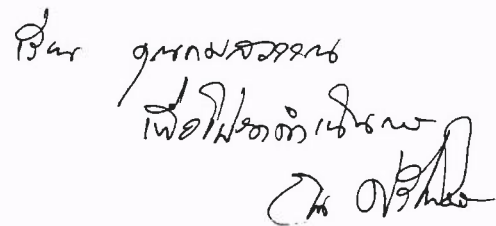 เรียน คุณกมลวรรณ
เพื่อโปรดดำเนินการ